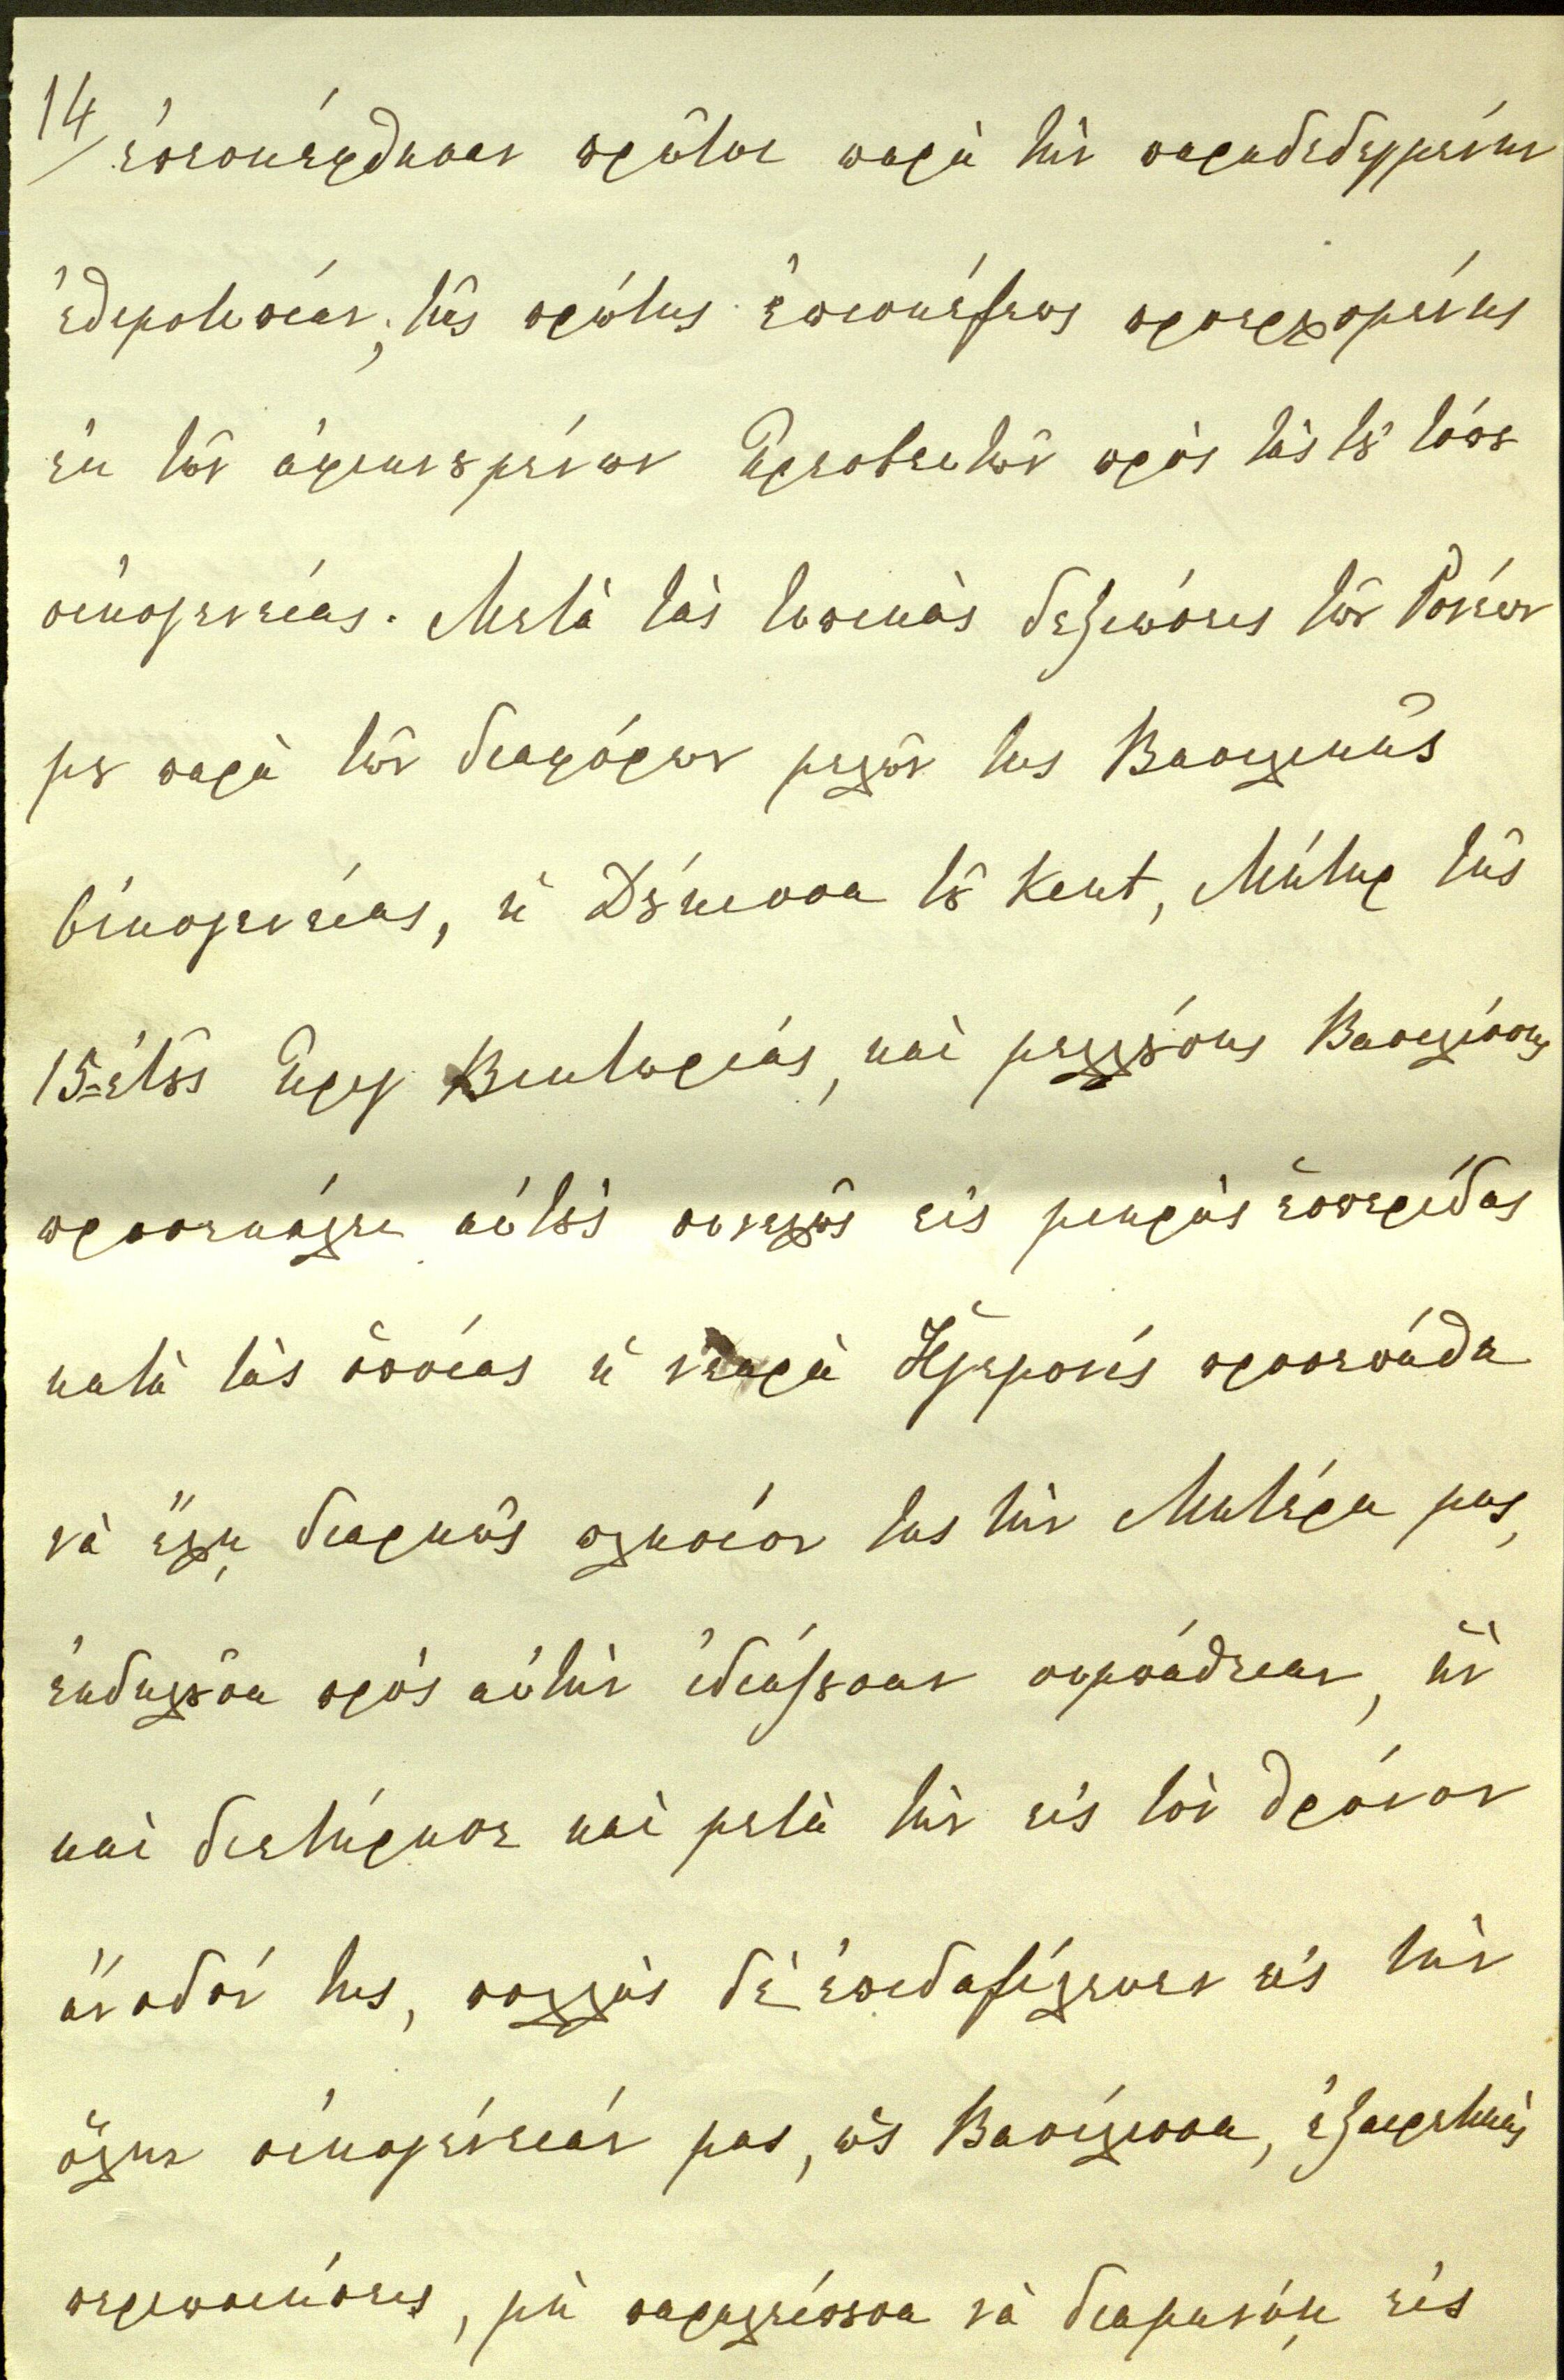 14/ ἐπεσκέφθησαν πρῶτοι παρὰ τὴν παραδεδεγμένην
ἐθιμοταξίαν, τῆς πρώτης ἐπισκέψεως προερχομένης
ἐκ τῶν ἀφικνουμένων Πρεσβευτῶν πρὸς τὰς τοῦ τόπου
οἰκογενείας. Μετὰ τὰς τυπικὰς δεξιώσεις τῶν Γονέων
μου παρὰ τῶν διαφόρων μελῶν τῆς Βασιλικῆς
Οἰκογενείας, ἡ Δούκισσα τοῦ Kent, Μήτηρ τῆς
15-έτους Πριγ Βικτωρίας, καὶ μελλούσης Βασιλίσσης
προσεκάλει αὐτοὺς συνεχῶς εἰς μικρὰς ἑσπερίδας
κατὰ τὰς ὁποίας ἡ νεαρὰ Ἡγεμονὶς προσεπάθει
νὰ ἔχῃ διαρκῶς πλησίον της τὴν Μητέρα μας,
ἐκδηλοῦσα πρὸς αὐτὴν ἰδιάζουσαν συμπάθειαν, ἣν
καὶ διετήρησε καὶ μετὰ τὴν εἰς τὸν θρόνον
ἄνοδόν της, πολλὰς δὲ ἐπεδαψίλευεν εἰς τὴν
ὅλην οἰκογένειάν μας, ὡς Βασίλισσα, ἐξαιρετικὰς
περιποιήσεις, μὴ παραλείπουσα νὰ διαμηνύῃ εἰς